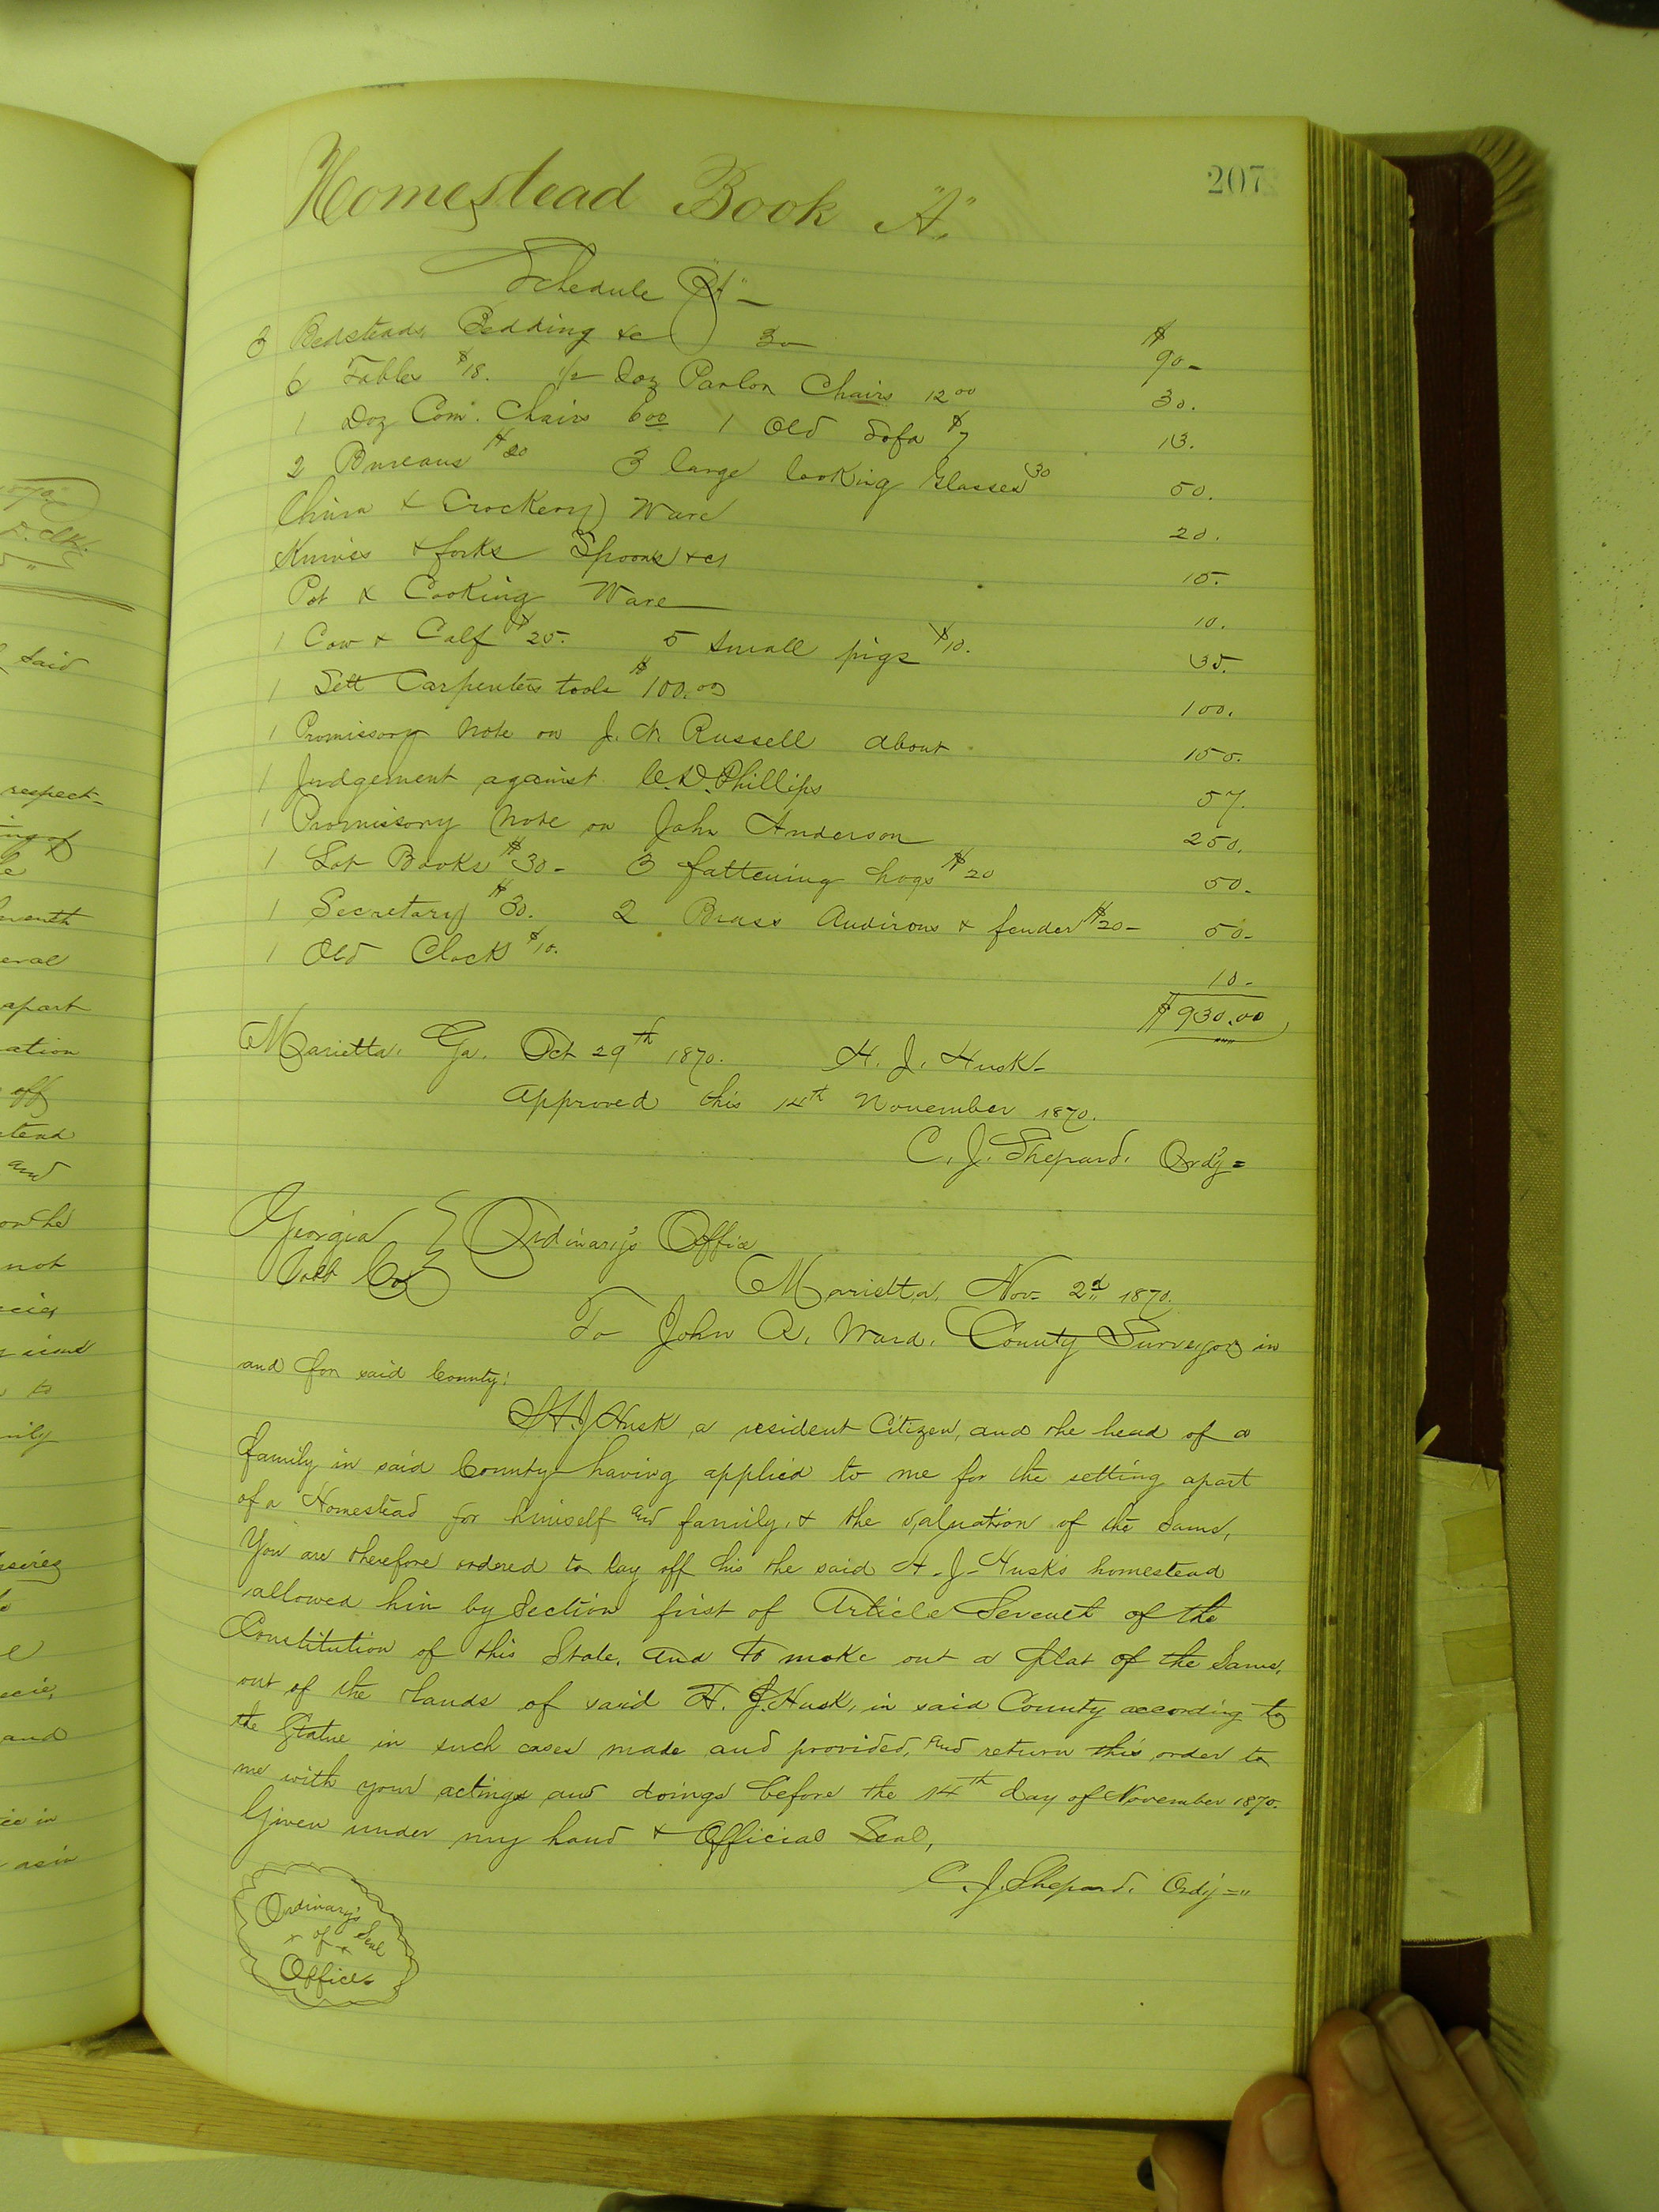 207
Homestead Book "A"
Schedule "A" —
3 Bedsteads, Bedding &c 30 $ 90 —
6 Tables $18. ½ Doz Parlor Chairs 12 00 30.
1 Doz Com. Chairs 6 00 1 Old Sofa $7 13.
2 Bureaus $20 3 large looking Glasses 30 50.
China & Crockery Ware 20.
Knives & forks Spoons &c 15.
Pot & Cooking Ware 10.
1 Cow & Calf $25. 5 small pigs $10. 35.
1 Sett Carpenters tools $100.00 100.
1 Promissory Note on J. N. Russell about 150.
1 Judgement against W. D. Phillips 57.
1 Promissory Note on John Anderson 250.
1 Lot Books $30 — 3 fattening hogs $20 50 —
1 Secretary $30. 2 Brass Andirons & fender $20 — 50 —
1 Old Clock $10. 10 —
$930.00
Marietta, Ga. Oct 29th 1870. H. J. Husk —
Approved this 14th November 1870.
C. J. Shepard. Ord'y =
Georgia } Ordinary's Office
Cobb Co } Marietta, Nov= 2d 1870.
To John R. Ward, County Surveyor in
and for said County:
H. J. Husk a resident Citizen, and the head of a
family in said County having applied to me for the setting apart
of a Homestead for himself and family, & the valuation of the same,
You are therefore ordered to lay off his the said H. J. Husk's homestead
allowed him by Section first of Article Seventh of the
Constitution of this State. and to make out a plat of the same,
out of the lands of said H. J. Husk, in said County according to
the Statue in such cases made and provided, and return this order to
me with your actings and doings before the 14th day of November 1870.
Given under my hand & Official Seal,
C. J. Shepard. Ordy ="
Ordinary's
x of x Seal
Office
said
respect-
ing of
eral
apart
ation
off
and
not
to
and